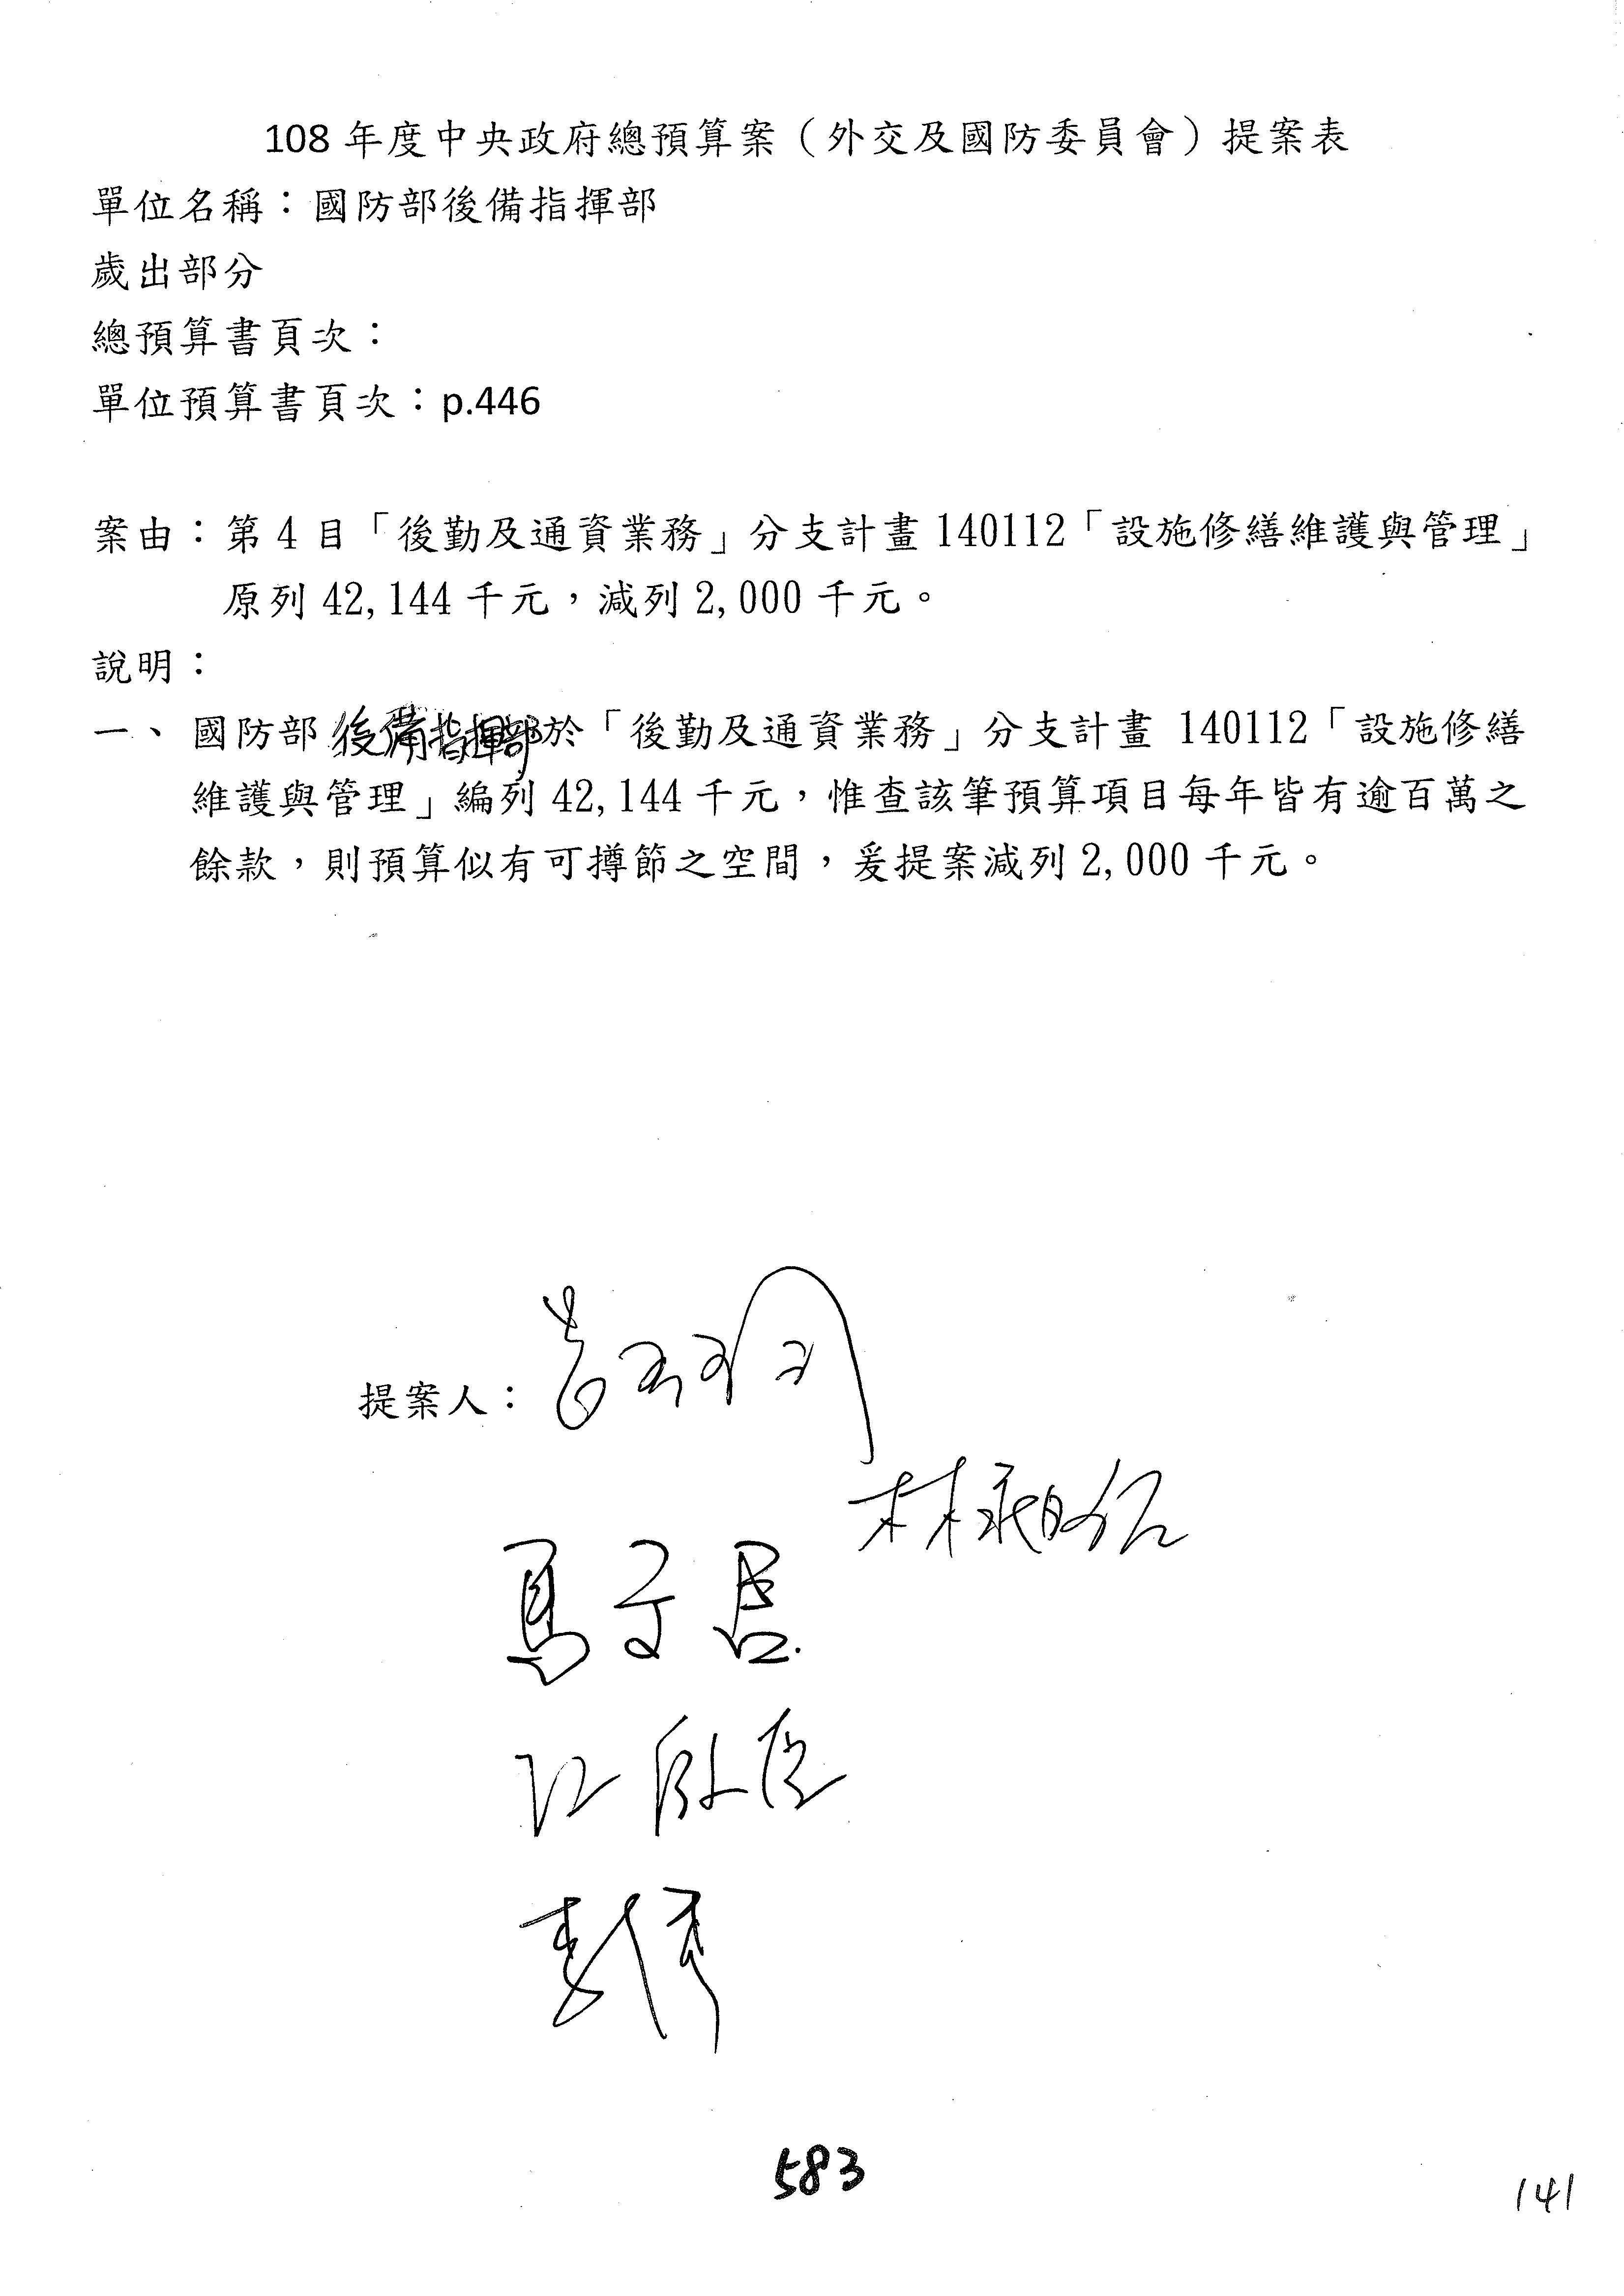 108 年度中央政府總預算案（外交及國防委員會）提案表
單位名稱：國防部後備指揮部
歲出部分
總預算書頁次：
單位預算書頁次：p.446
案由：第 4 目「後勤及通資業務」分支計畫 140112「設施修繕維護與管理」
原列 42,144 千元，減列 2,000 千元。
說明：
一、國防部後備指揮部於「後勤及通資業務」分支計畫 140112「設施修繕
維護與管理」編列 42,144 千元，惟查該筆預算項目每年皆有逾百萬之
餘款，則預算似有可撙節之空間，爰提案減列 2,000 千元。
提案人：
林昶佐
馬文君
江啟臣
583
141